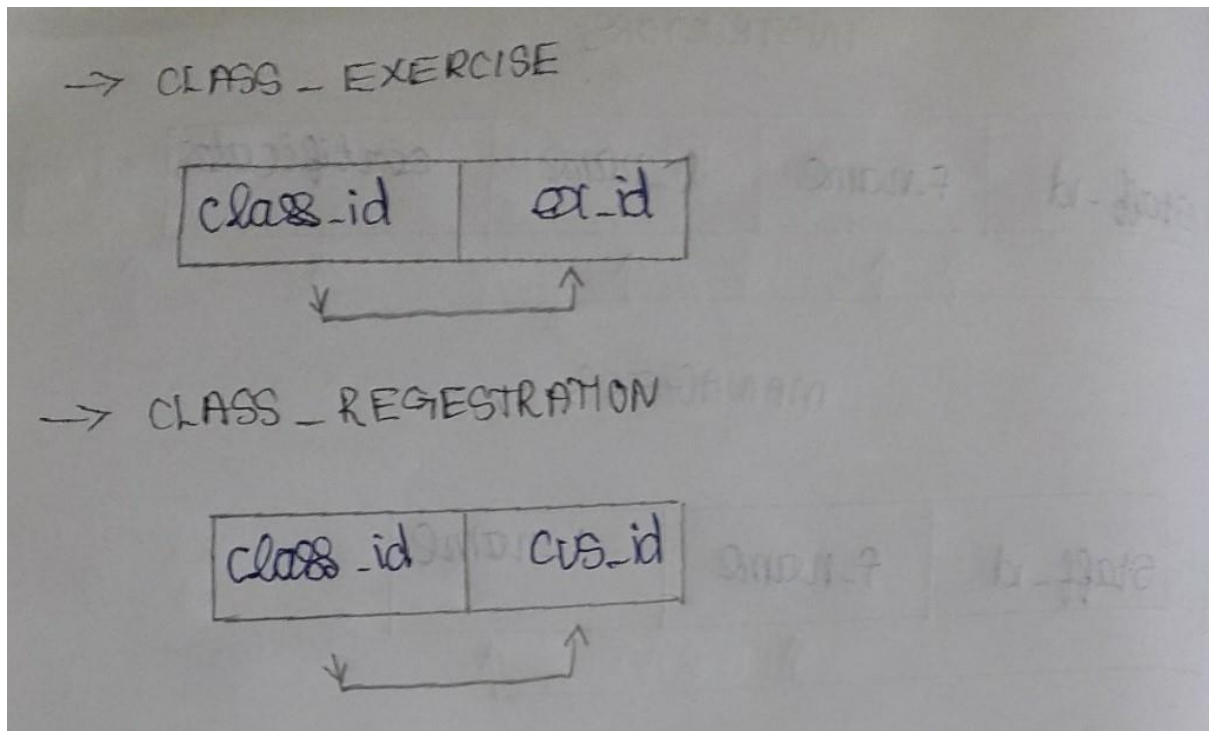 → CLASS_EXERCISE
class_id ex_id
→ CLASS_REGESTRATION
class_id cus_id